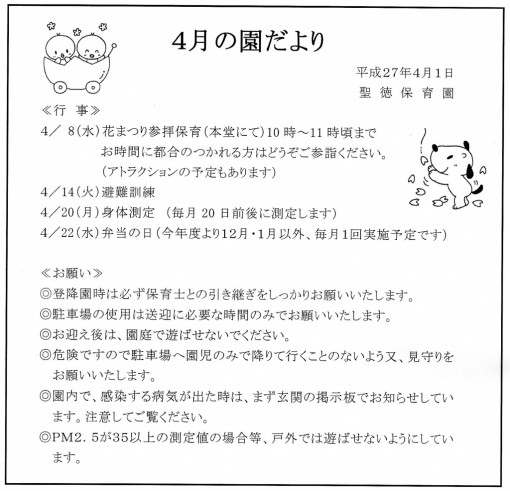 4月の園だより
平成27年4月1日
聖徳保育園
≪行 事≫
4／ 8(水)花まつり参拝保育(本堂にて)10時～11時頃まで
お時間に都合のつかれる方はどうぞご参詣ください。
(アトラクションの予定もあります)
4／14(火)避難訓練
4／20(月)身体測定 (毎月20日前後に測定します)
4／22(水)弁当の日(今年度より12月・1月以外、毎月1回実施予定です)
≪お願い≫
◎登降園時は必ず保育士との引き継ぎをしっかりお願いいたします。
◎駐車場の使用は送迎に必要な時間のみでお願いいたします。
◎お迎え後は、園庭で遊ばせないでください。
◎危険ですので駐車場へ園児のみで降りて行くことのないよう又、見守りを
お願いいたします。
◎園内で、感染する病気が出た時は、まず玄関の掲示板でお知らせしてい
ます。注意してご覧ください。
◎PM2．5が35以上の測定値の場合等、戸外では遊ばせないようにしてい
ます。